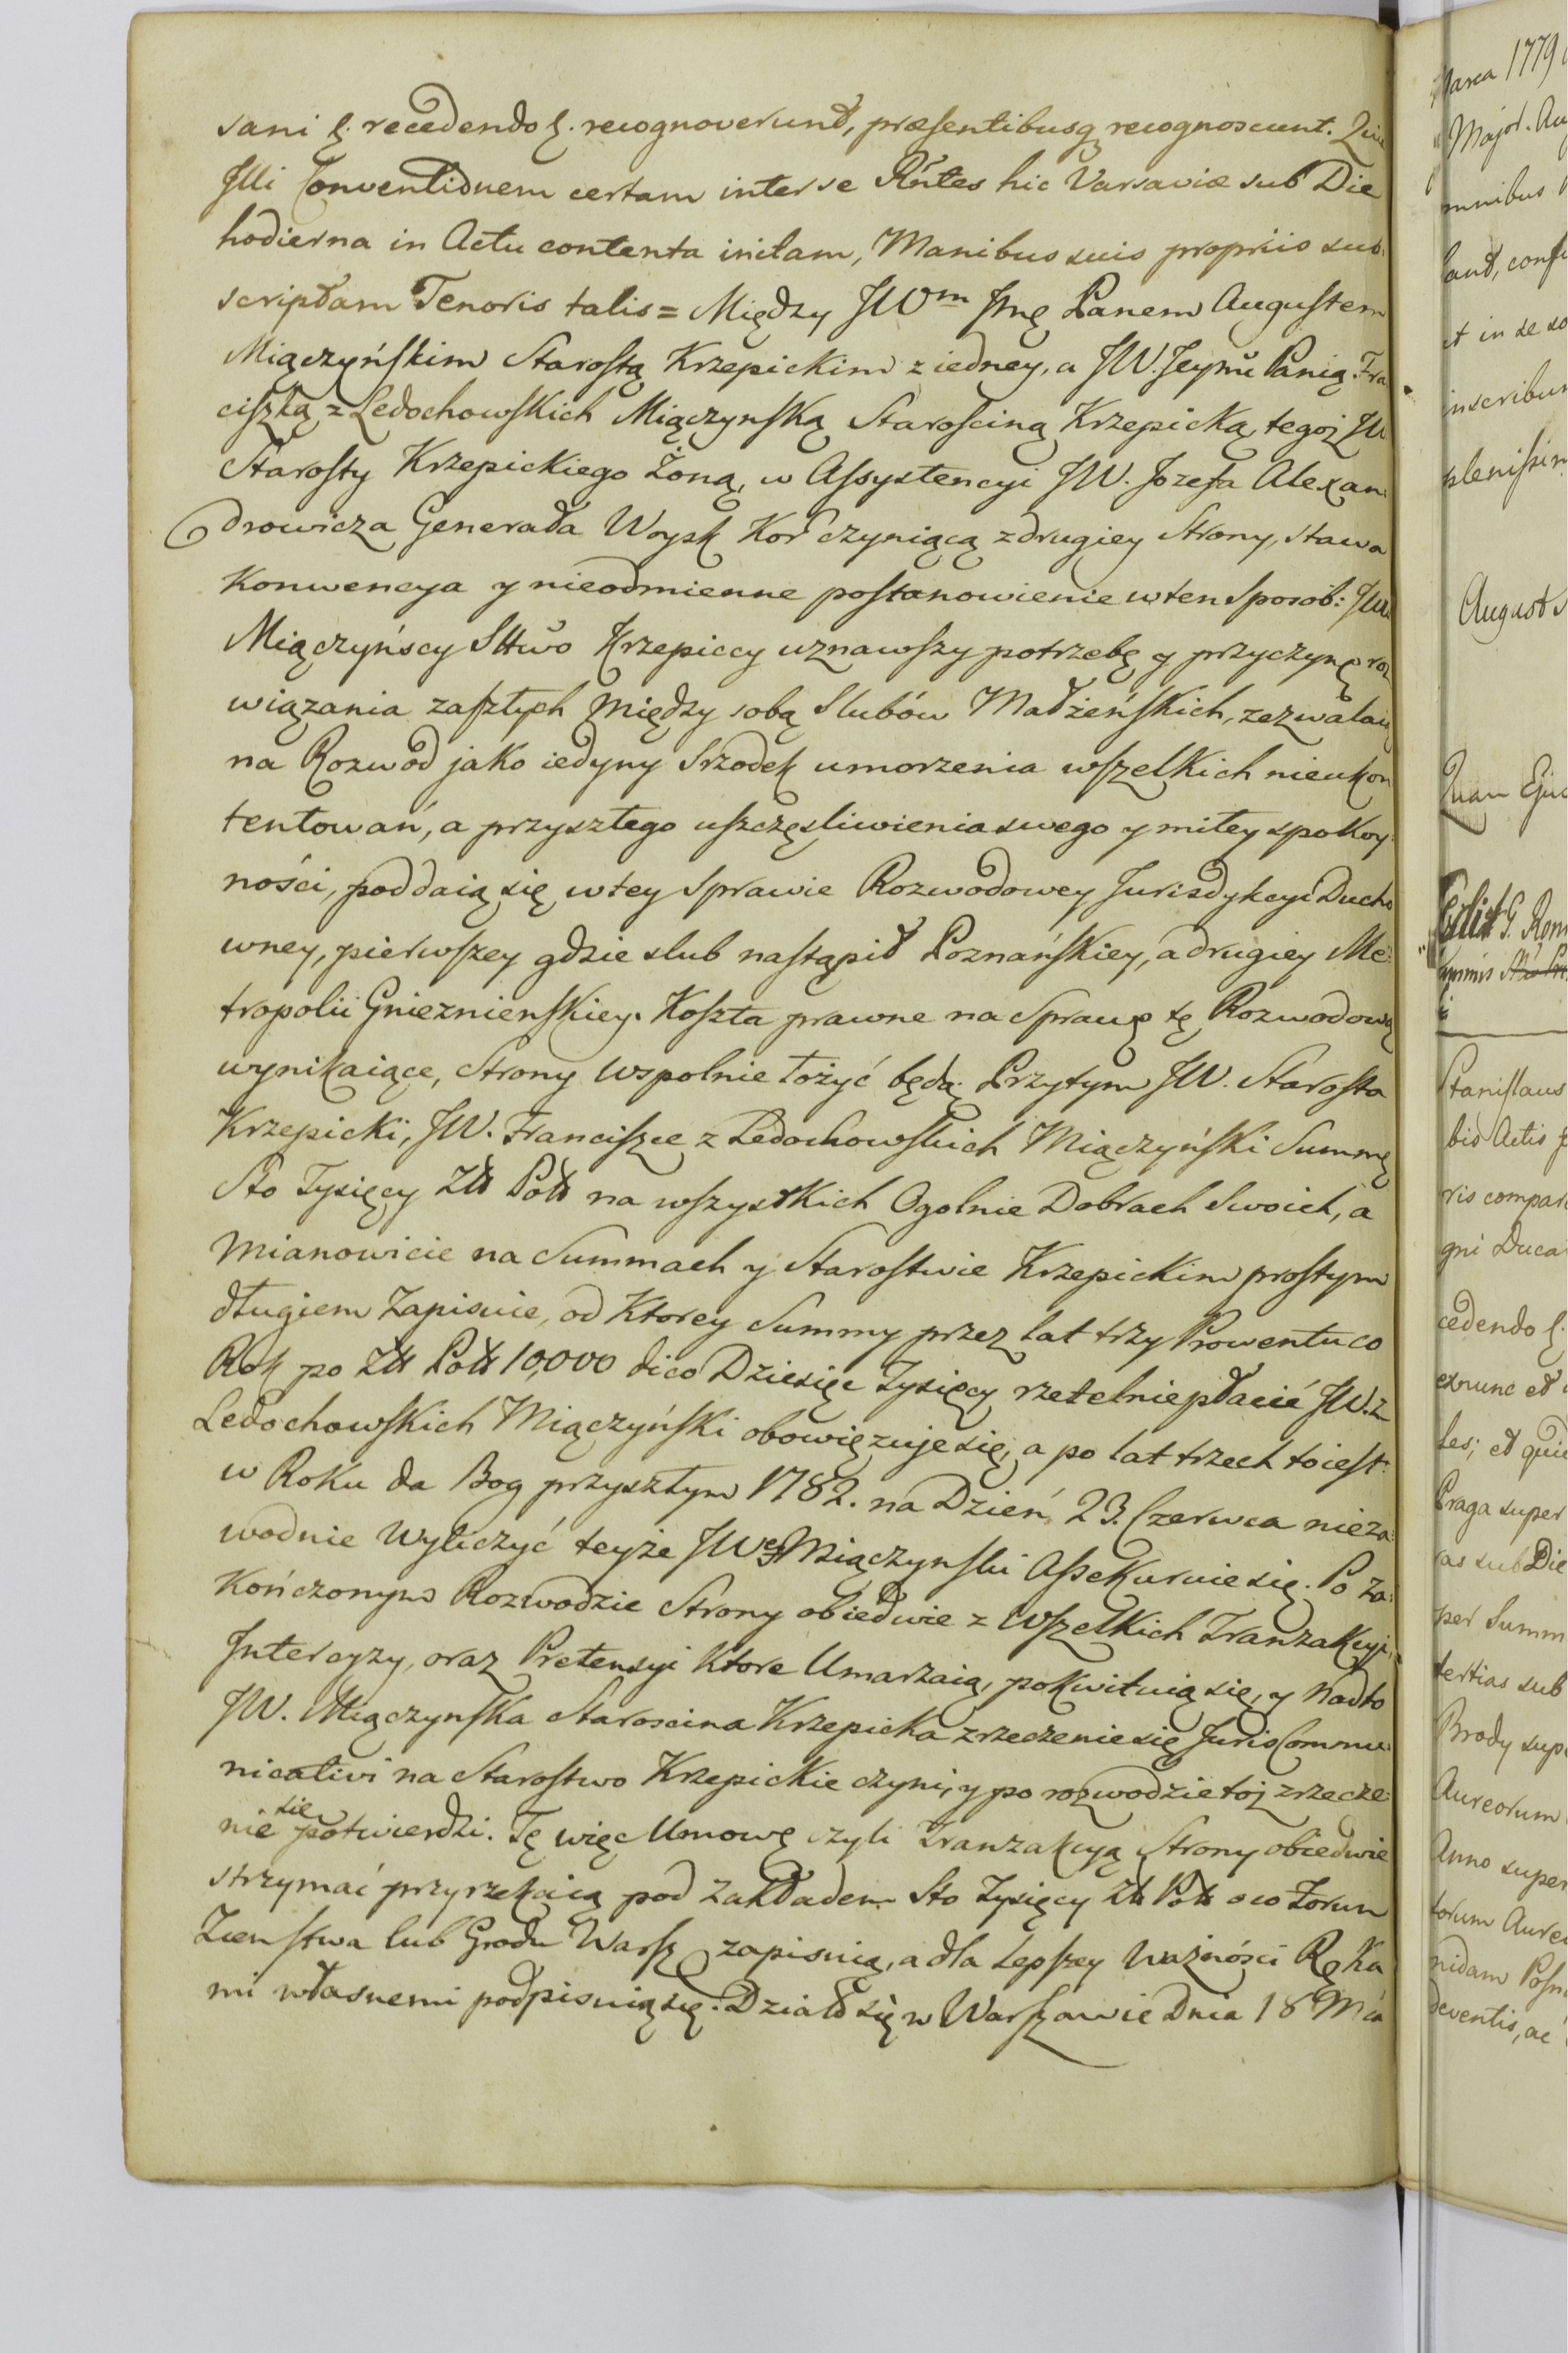 sani &. recedendo &. recognoverunt, præsentibusq recognoscunt. Quia
Illi Conventionem certam inter se Rńtes hic Varsaviæ sub Die
hodierna in Actu contenta initam, Manibus suis propriis sub
scriptam Tenoris talis = Między JWm Jmę Panem Augustem
Miączyńskim Starostą Krzepickim z iedney, a JW. Jeymć Panią Fra
ciszką z Ledochowskich Miączynską Starosciną Krzepicką, tegoż JW
Starosty Krzepickiego Żoną, w Assystencyi JW. Jozefa Alexan
drowicza Generała Woysk Kor czyniącą z drugiey Strony, stawa
Konwencya y nieodmienne postanowienie w ten Sposob: JW
Miączyńscy Sttwo Krzepiccy uznawszy potrzebę y przyczynę roz
wiązania zaszłych między sobą Slubów Małżeńskich, zezwalaią
na Rozwod jako iedyny Srzodek umorzenia wszelkich nieukon
tentowań, a przyszłego uszczęsliwienia swego y miłey spokoy
ności, poddaią się w tey Sprawie Rozwodowey Jurisdykcyi Ducho
wney, pierwszey gdzie slub nastąpił Poznańskiey, a drugiey Me
tropolii Gnieznienskiey. Koszta prawne na Sprawę tę Rozwodową
wynikaiące, Strony wspolnie łożyć będą. Przytym JW. Starosta
Krzepicki, JW. Franciszce z Ledochowskich Miączyński Summę
Sto Tysięcy Złł Polł na wszystkich Ogolnie Dobrach Swoich, a
Mianowicie na Summach y Starostwie Krzepickim prostym
długiem Zapisuie, od Ktorey Summy przez lat trzy Prowentu co
Rok po Złł Polł 10,000 dico Dziesięc Tysięcy rzetelnie płacić JW. z
Ledochowskich Miączyński obowięzuje się, a po lat trzech to iest
w Roku da Bog przyszłym 1782. na Dzień 23. Czerwca nieza
wodnie Wyliczyć teyże JWey Miączynski Assekuruie się. Po za
Kończonym Rozwodzie Strony obiedwie z Wszelkich Tranzakcyi,
Intercyzy, oraz Pretensyi Ktore Umarzaią, pokwituią się, y nadto
JW. Miączynska Staroscina Krzepicka zrzeczenie się Juris Commu
nicativi na Starostwo Krzepickie czyni, y po rozwodzie toż zrzecze
nie się potwierdzi. Tę więc Umowę czyli Tranzakcyą Strony obiedwie
strzymać przyrzekaią pod Zakładem Sto Tysięcy Złł Polł o co Forum
Ziemstwa lub Grodu Warsz zapisuią, a dla Lepszey Ważności Ręka
mi własnemi podpisuią się. Działo się w Warszawie Dnia 18 Mca
Marca 1779
Major. Au
mnibus
land, conf
et in se
inscribun
plenissim
August
Quam
Edit G. Rom
Stanislaus
bis Actis
ris compar
gni Duca
cedendo &.
exnunc et
les; et quie
Praga super
as sub Die
per Summ
tertias sub
Brody sup
Aureorum
Anno super
torum Aure
nidam Posn
deventis, ac